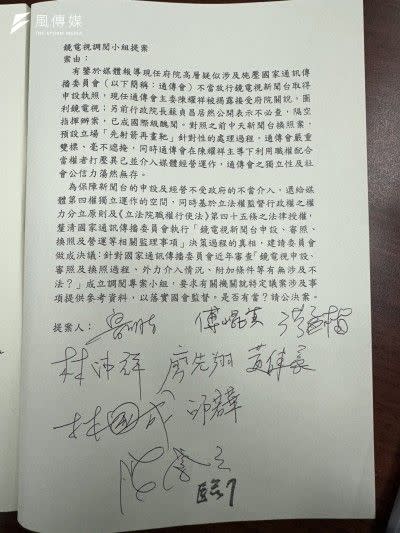 風傳媒
鏡電視調閱小組提案
案由：
有鑒於媒體報導現任府院高層疑似涉及施壓國家通訊傳
播委員會（以下簡稱：通傳會）不當放行鏡電視新聞台取得
申設執照，現任通傳會主委陳耀祥被揭露接受府院關說，圖
利鏡電視；另前行政院長蘇貞昌居然公開表示不必查，隔空
指揮辦案，已成國際級醜聞。對照之前中天新聞台換照案，
預設立場「先射箭再畫靶」針對性的處理過程，通傳會嚴重
雙標，毫不遮掩，同時通傳會在陳耀祥主導下利用職權配合
當權者打壓異已並介入媒體經營運作，通傳會之獨立性及社
會公信力蕩然無存。
為保障新聞台的申設及經營不受政府的不當介入，還給媒
體第四權獨立運作的空間，同時基於立法權監督行政權之權
力分立原則及《立法院職權行使法》第四十五條之法律授權，
釐清國家通訊傳播委員會執行「鏡電視新聞台申設、審照、
換照及營運等相關監理事項」決策過程的真相，建請委員會
做成決議：針對國家通訊傳播委員會近年審查「鏡電視申設、
審照及換照過程、外力介入情況、附加條件等有無涉及不
法？」成立調閱專案小組，要求有關機關就特定議案涉及事
項提供參考資料，以落實國會監督。是否有當？請公決案。
提案人：
傅崐萁 洪孟楷
林沛祥 廖先翔 黃健豪
林國成 邱若華
臨7